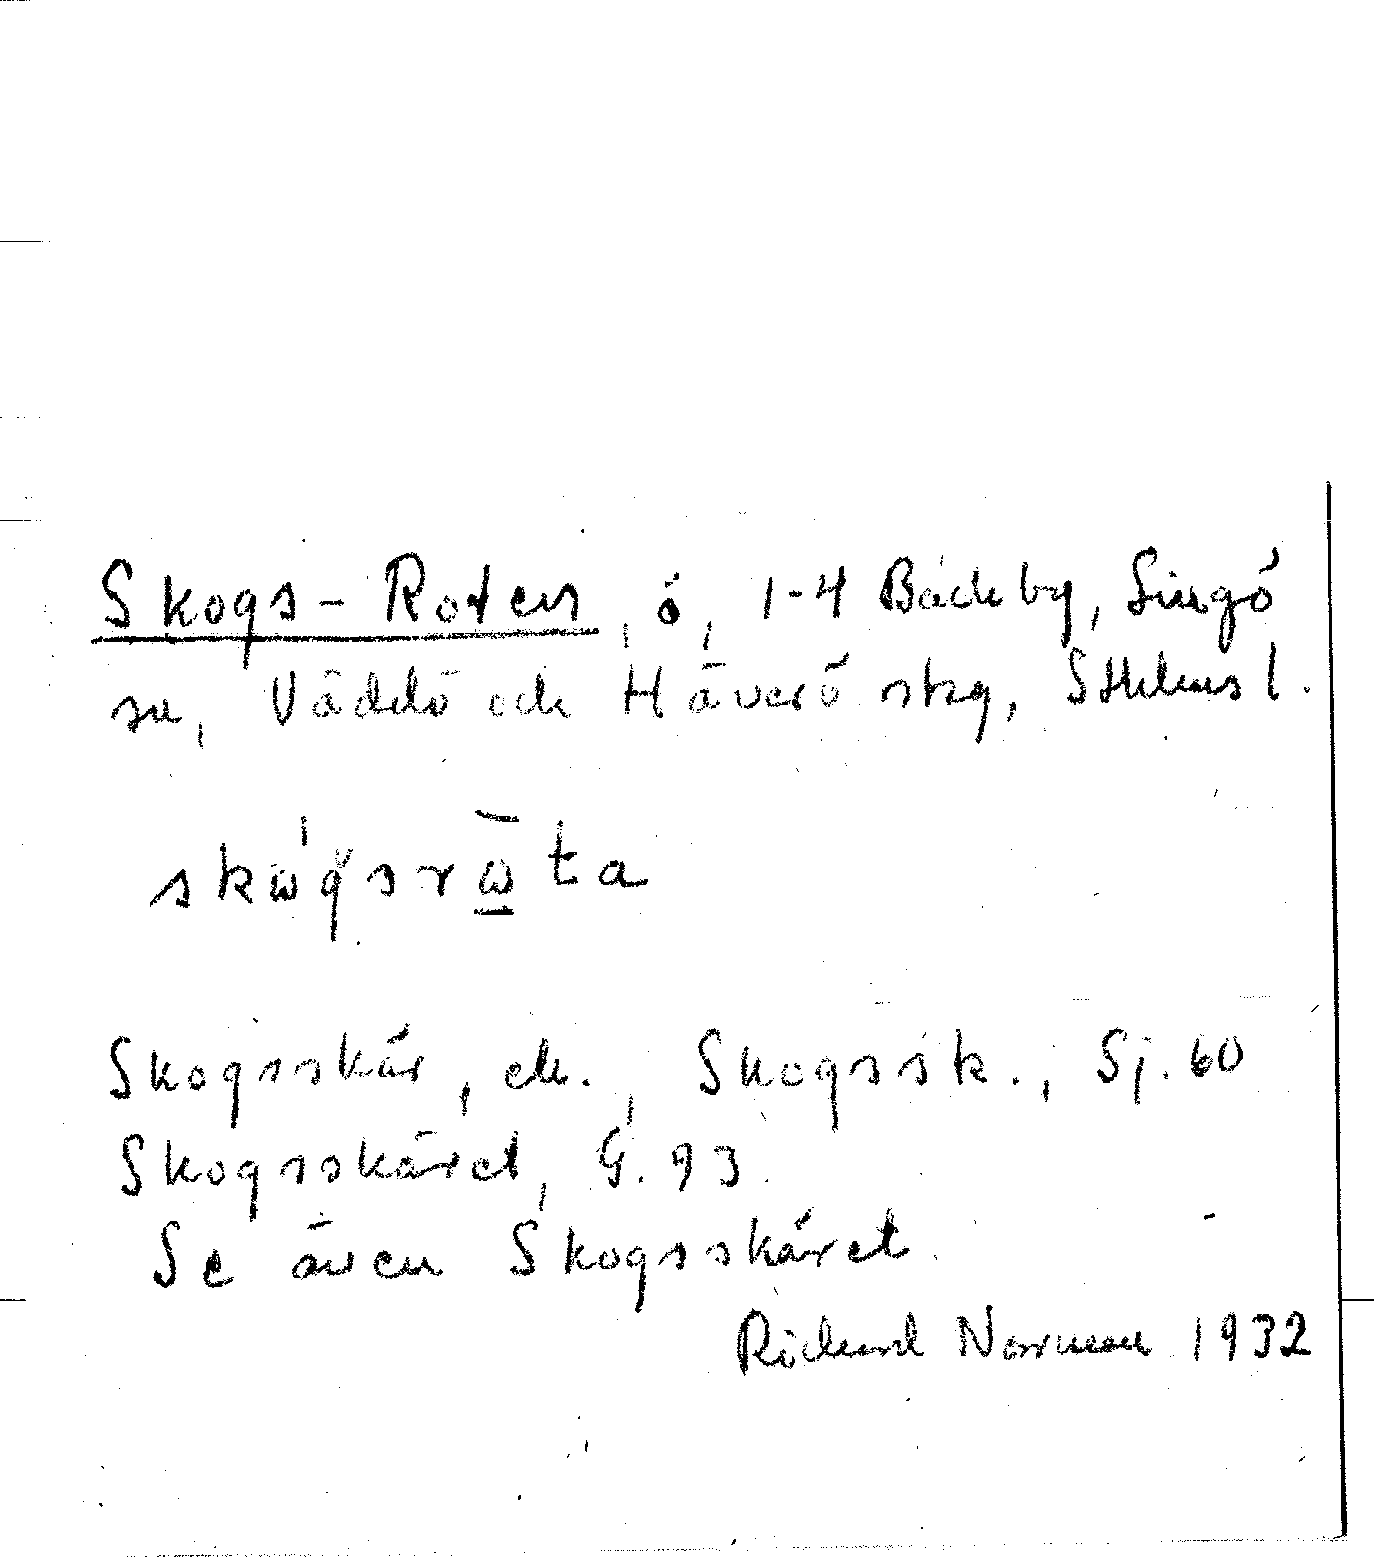 Skogs-Roten, ö, 1-4 Backby, Singö
sn, Väddö och Häverö skg, Sthlms l.
skωgsrω̄ta
Skogsskär, ek., Skogssk., Sj. 60
Skogsskäret, G. 93
Se även Skogsskäret.
Rickard Norman 1932